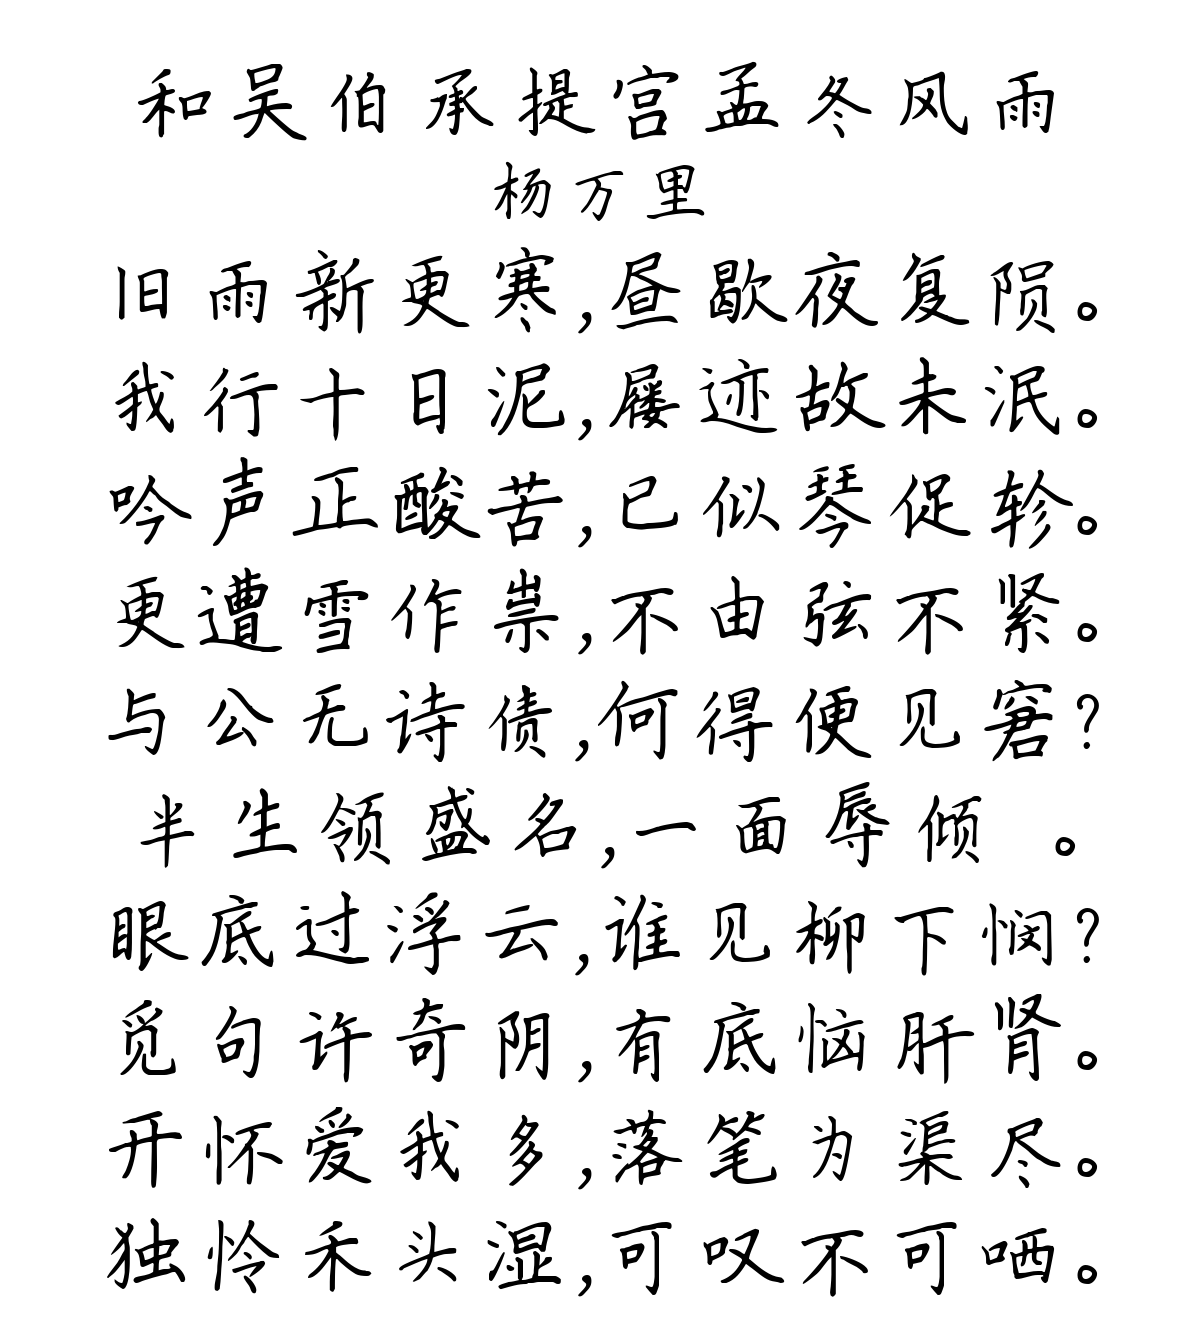 和吴伯承提宫孟冬风雨
杨万里
旧雨新更寒,昼歇夜复陨。
我行十日泥,屦迹故未泯。
吟声正酸苦,已似琴促轸。
更遭雪作祟,不由弦不紧。
与公无诗债,何得便见窘?
半生领盛名,一面辱倾 。
眼底过浮云,谁见柳下悯?
觅句许奇阴,有底恼肝肾。
开怀爱我多,落笔为渠尽。
独怜禾头湿,可叹不可哂。